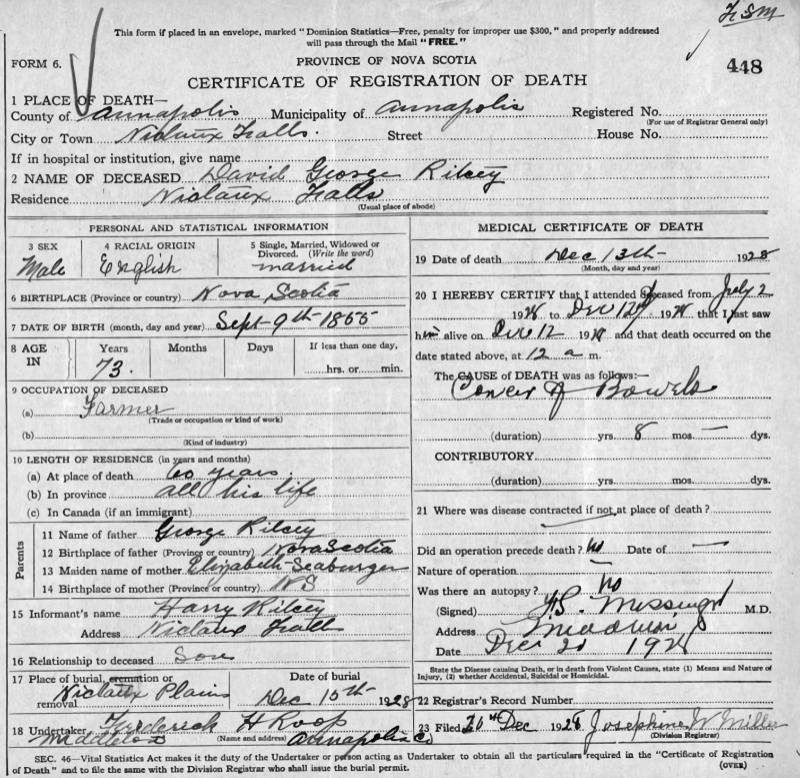 This form if placed in an envelope, marked "Dominion Statistics—Free, penalty for improper use $300," and properly addressed
will pass through the Mail "FREE."
FORM 6.
PROVINCE OF NOVA SCOTIA
448
CERTIFICATE OF REGISTRATION OF DEATH
1 PLACE OF DEATH—
County of Annapolis Municipality of Annapolis Registered No.
(For use of Registrar General only)
City or Town Niclaux Falls. Street House No.
If in hospital or institution, give name
2 NAME OF DECEASED David George Ritcey
Residence Niclaux Falls
(Usual place of abode)
PERSONAL AND STATISTICAL INFORMATION
3 SEX
Male
4 RACIAL ORIGIN
English
5 Single, Married, Widowed or
Divorced. (Write the word)
married
6 BIRTHPLACE (Province or country) Nova Scotia
7 DATE OF BIRTH (month, day and year) Sept 9th 1855
8 AGE IN
Years Months Days If less than one day,
73. hrs. or min.
9 OCCUPATION OF DECEASED
(a) Farmer
(Trade or occupation or kind of work)
(b)
(Kind of industry)
10 LENGTH OF RESIDENCE (in years and months)
(a) At place of death 60 years.
(b) In province all his life
(c) In Canada (if an immigrant)
Parents
11 Name of father George Ritcey
12 Birthplace of father (Province or country) Nova Scotia
13 Maiden name of mother Elizabeth Seaburger
14 Birthplace of mother (Province or country) N S
15 Informant's name Harry Ritcey
Address Niclaux Falls
16 Relationship to deceased Son
17 Place of burial, cremation or
removal Niclaux Plains
Date of burial
Dec 15th 1928
18 Undertaker Frederick H Roop
Middleton (Name and address) Annapolis Co
MEDICAL CERTIFICATE OF DEATH
19 Date of death Dec 13th 1928
(Month, day and year)
20 I HEREBY CERTIFY that I attended deceased from July 2
1928 to Dec 12 1928 that I last saw
him alive on Dec 12 1928 and that death occurred on the
date stated above, at 12 a m.
The CAUSE of DEATH was as follows:—
Cancer of Bowels
(duration) yrs. 8 mos — dys.
CONTRIBUTORY
(duration) yrs. mos. dys.
21 Where was disease contracted if not at place of death?
Did an operation precede death? No Date of —
Nature of operation —
Was there an autopsy? No
(Signed) M.D.
Address
Date Dec 21 1928
State the Disease causing Death, or in death from Violent Causes, state (1) Means and Nature of
Injury, (2) whether Accidental, Suicidal or Homicidal.
22 Registrar's Record Number
23 Filed 26th Dec 1928 Josephine W Miller
(Division Registrar)
SEC. 46—Vital Statistics Act makes it the duty of the Undertaker or person acting as Undertaker to obtain all the particulars required in the "Certificate of Registration
of Death" and to file the same with the Division Registrar who shall issue the burial permit. (OVER)